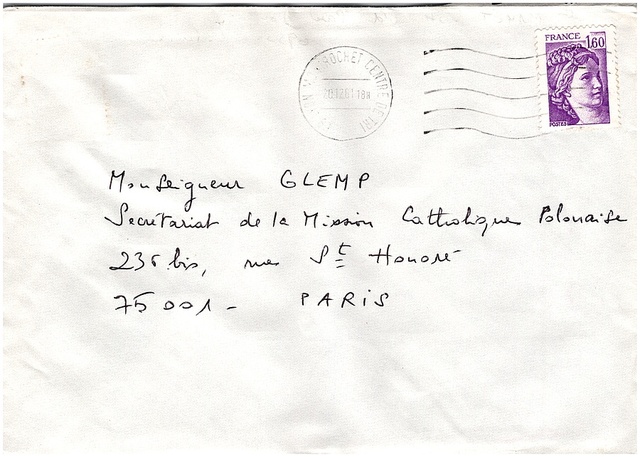 FRANCE 1,60
POSTES
ROCHET CENTRE DE TRI
18H
Monseigneur GLEMP
Secrétariat de la Mission Catholique Polonaise
236 bis, rue St Honoré
75001 - PARIS